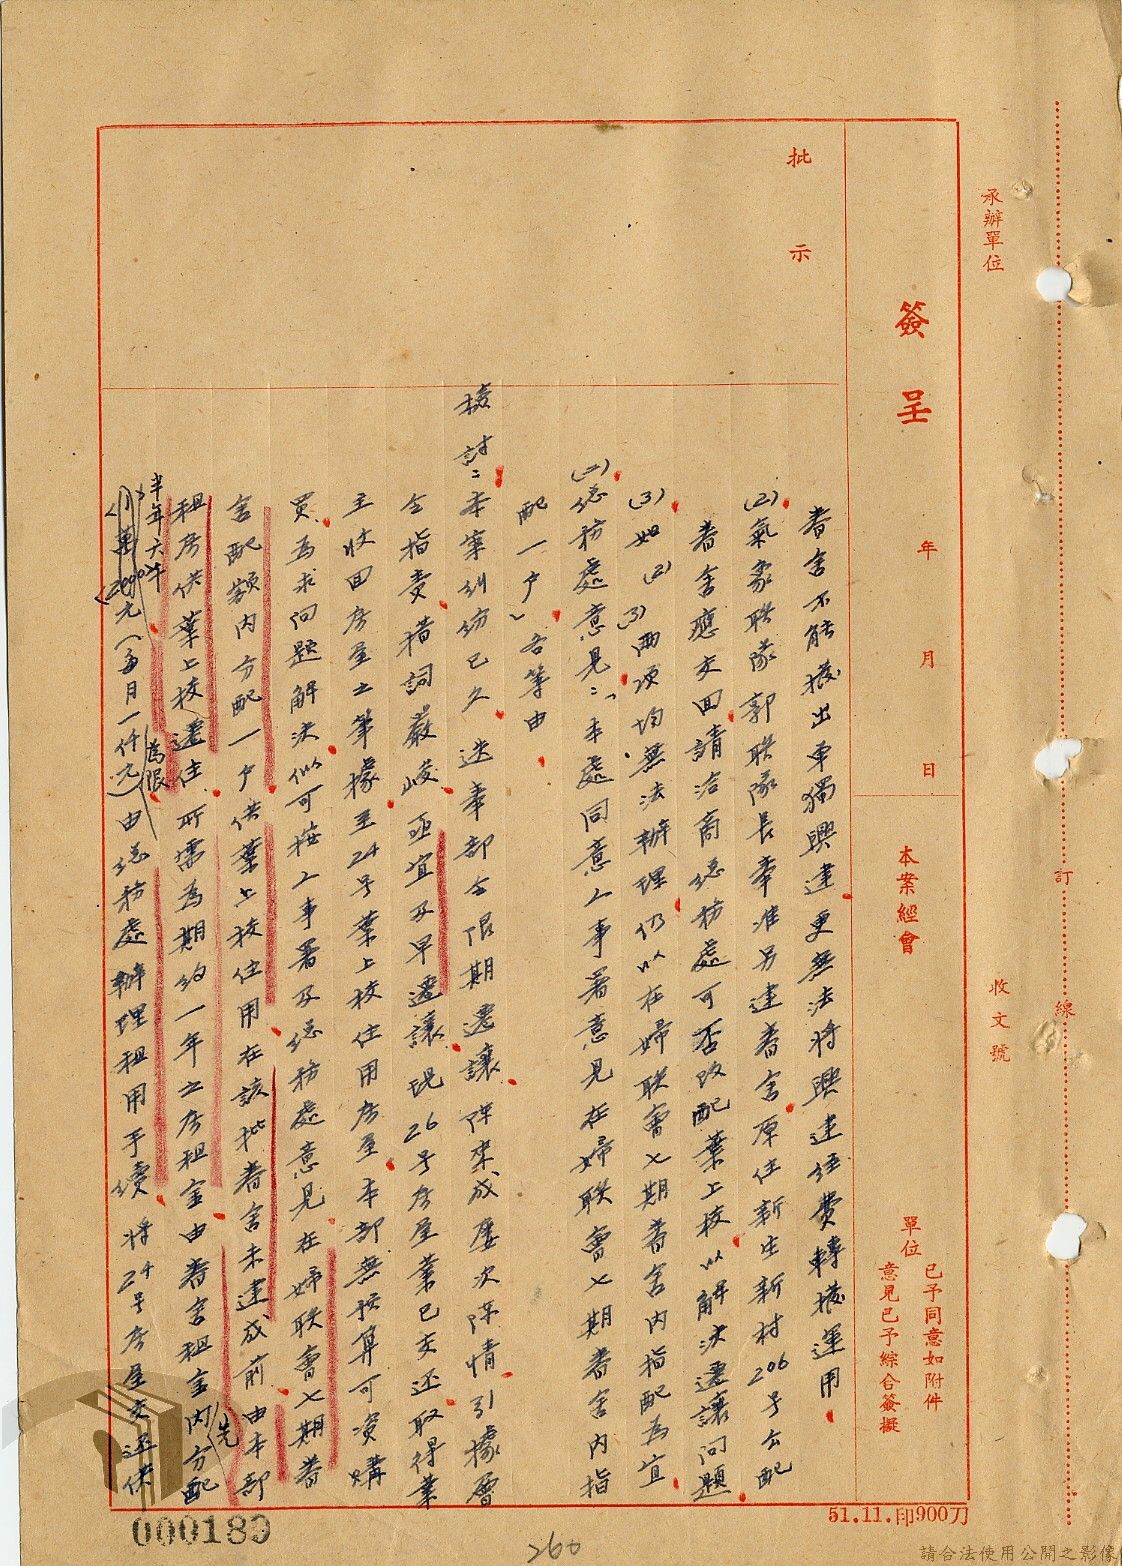 承辦單位
收文號
訂
線
簽呈
年
月
日
本案經會
單位
已予同意如附件
意見已予綜合簽擬
批示
眷舍不能撥出單獨興建更無法將興建經費轉撥運用
(2)氣象聯隊郭聯隊長奉准另建眷舍原住新生新村206号公配
眷舍應交回請洽商總務處可否改配葉上校以解決遷讓問題
(3)如(2)(3)兩項均無法辦理仍以在婦联會七期眷舍內指配為宜
(二)總務處意見：「本處同意工事署意見在婦联會七期眷舍內指
配一户」各等由
檢討：本案糾紛已久迭奉部令限期遷讓陳案成屡次陳情引據層
令指責措詞嚴峻亟宜及早遷讓現26号房屋業已交还取得業
主收回房屋之筆據至24号葉上校住用房屋本部無預算可資購
買為求问題解決似可按工事署及總務處意見在婦联會七期眷
舍配額內分配一户供葉上校住用在該批眷舍未建成前由本部
先
租房供葉上校遷住所需為期約一年之房租金由眷舍租金內分配
半年六千
為限
元(每月一仟元)由總務處辦理租用手續將24号房屋交还供
51.11.印900刀
000189
260
請合法使用公開之影像